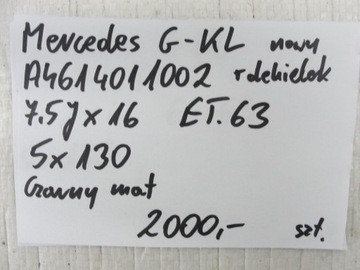 Mercedes G-KL nowy
A4614011002 + dekielek
7.5J x 16 ET.63
5x130
Czarny mat
2000,- szt.